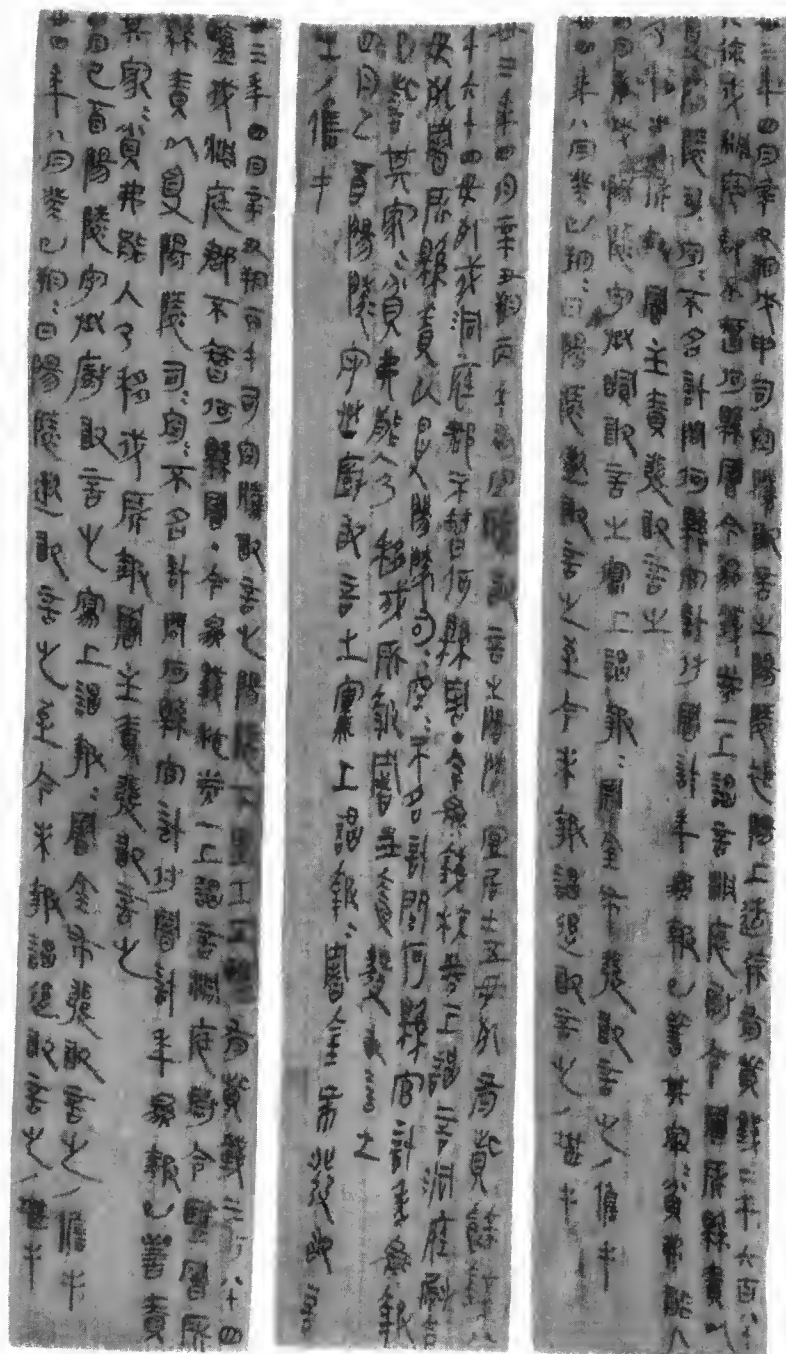 卅三年四月辛丑朔戊申司空騰敢言之陽陵褆陽上造徐有貲錢二千六百八十
八徐戍洞庭郡不智何縣署今為錢校券一上謁言洞庭尉令署所縣責以
受陽陵司=空=不名計問何縣官計付署計年為報已訾其家=貧弗能入
乃移戍所報署主責發敢言之
四月庚戌陽陵守丞廚敢言之寫上謁報=署金布發敢言之/儋手
卅四年八月癸巳朔=日陽陵遫敢言之至今未報謁追敢言之/堪手
卅三年四月辛丑朔丙午司空騰敢言之陽陵宜居士五毋死有貲餘錢八
千六十四毋死戍洞庭郡不智何縣署·今為錢校券一上謁言洞庭尉令
毋死署所縣責以受陽陵司=空=不名計問何縣官計年為報
已訾其家=貧弗能入乃移戍所報署主責發敢言之
四月己酉陽陵守丞廚敢言之寫上謁報=署金布發敢言
之/儋手
卅三年四月辛丑朔丙午司空騰敢言之陽陵下里士五鹽有貲錢三百八十四
鹽戍洞庭郡不智何縣署·今為錢校券一上謁言洞庭尉令鹽署所
縣責以受陽陵司=空=不名計問何縣官計付署計年為報已訾責
其家=貧弗能入乃移戍所報署主責發敢言之
四月己酉陽陵守丞廚敢言之寫上謁報=署金布發敢言之/儋手
卅四年八月癸巳朔=日陽陵遫敢言之至今未報謁追敢言之/堪手